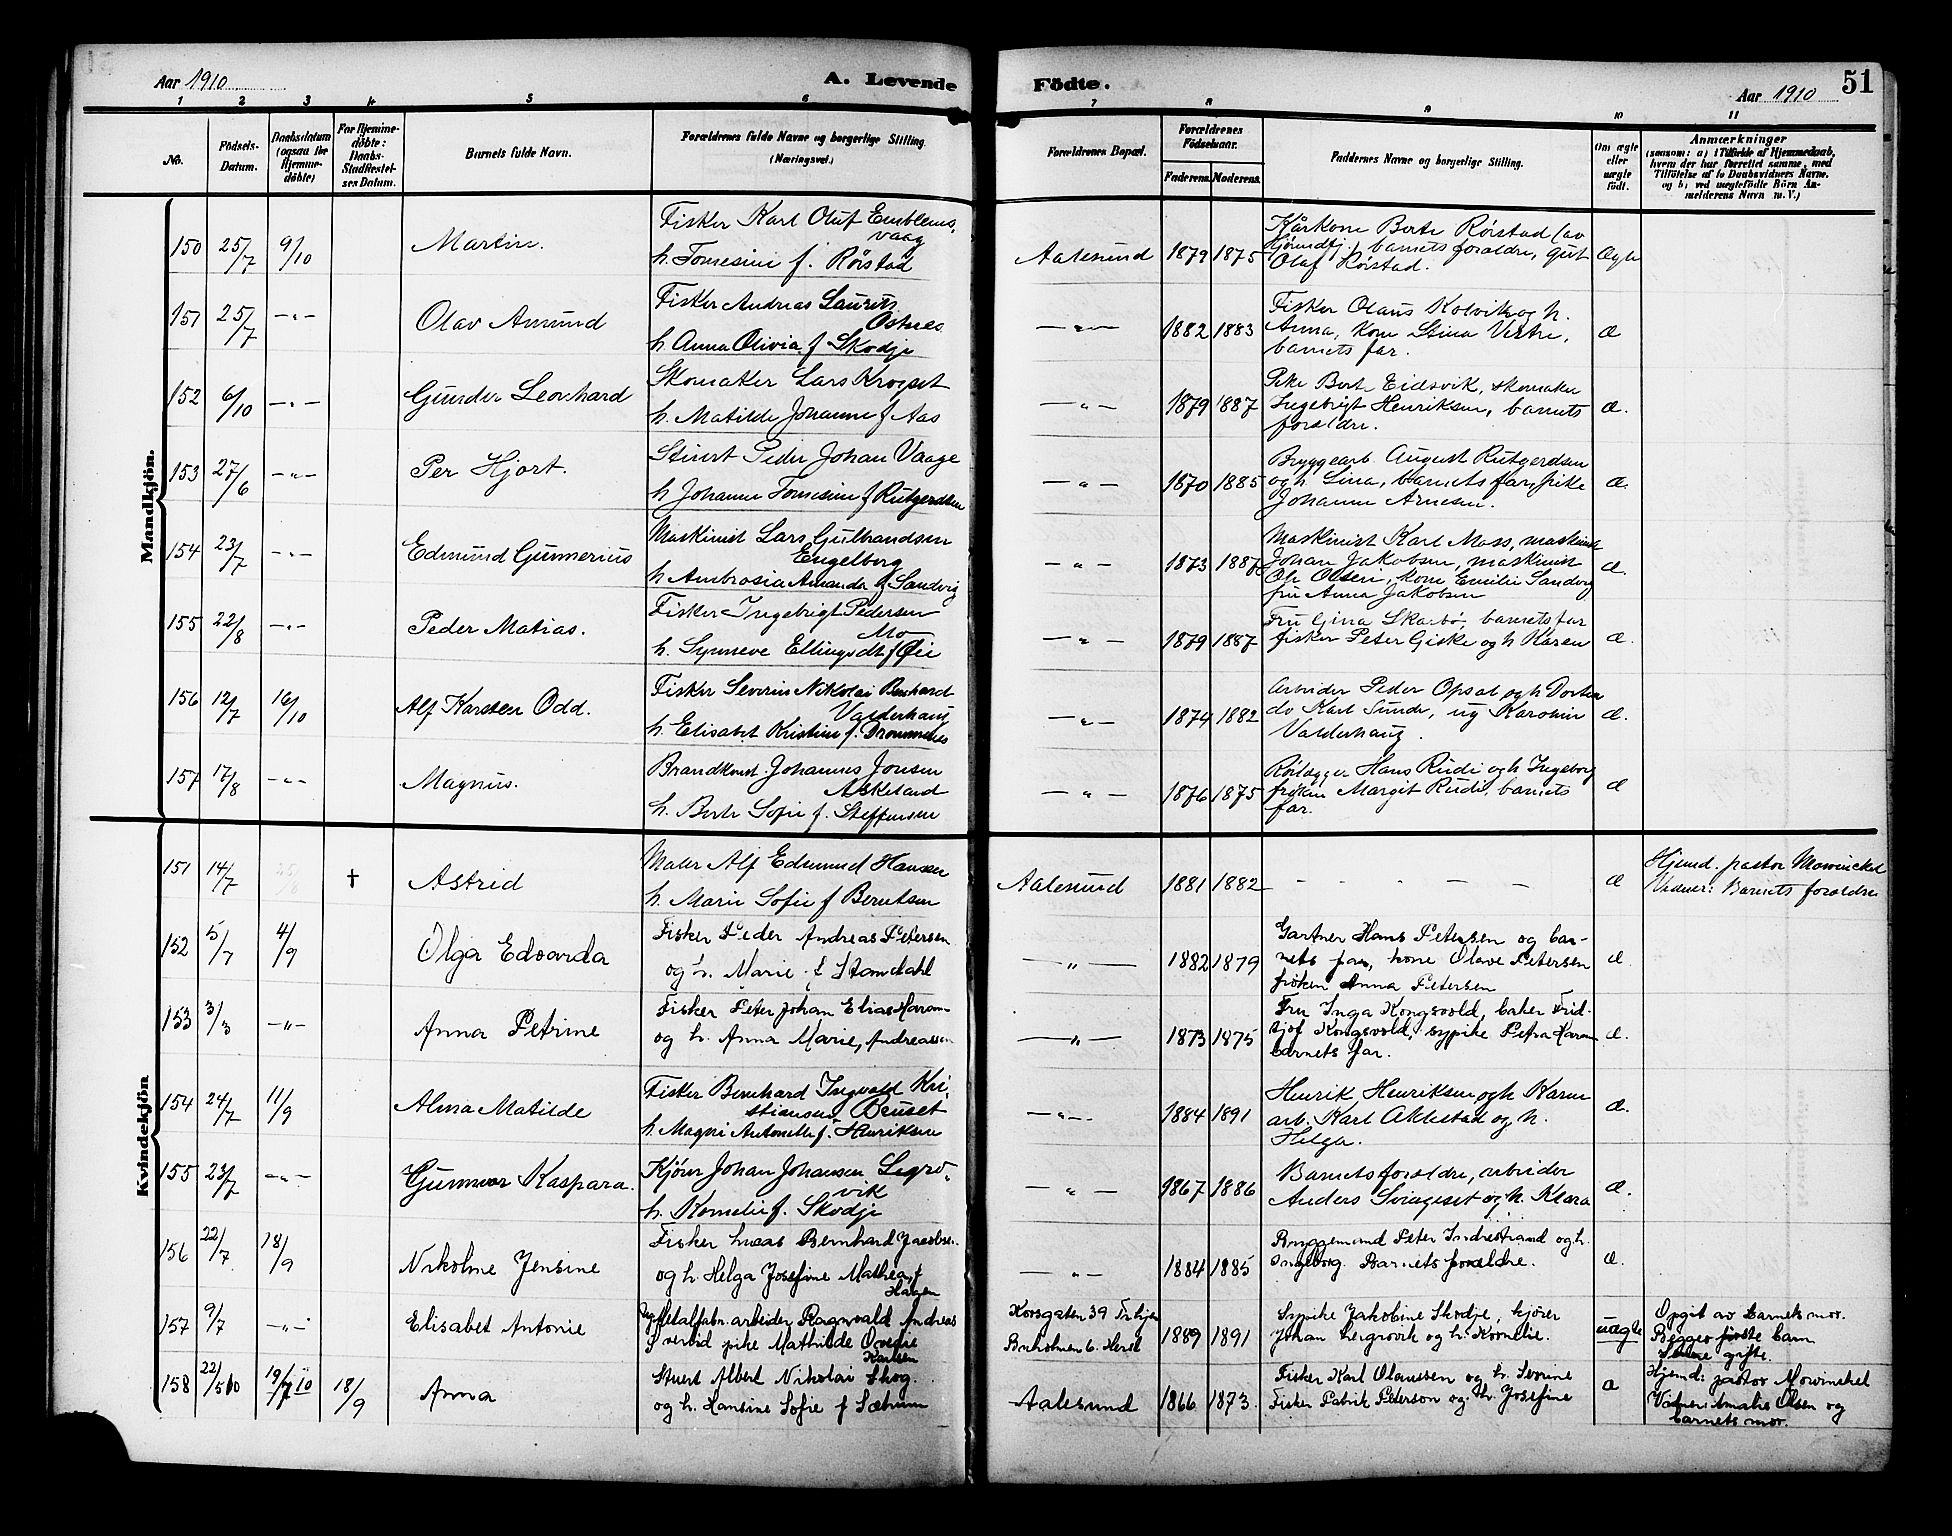 Aar 1910
A. Levende
Födte.
Aar 1910
51
1 2 3 4 5 6 7 8 9 10 11
No.
Födsels-
Datum.
Daabsdatum
(ogsaa for
Hjemme-
döbte)
For Hjemme-
döbte:
Daabs-
Stadfæstel-
ses Datum.
Barnets fulde Navn.
Forældrenes fulde Navne og borgerlige Stilling.
(Næringsvei.)
Forældrenes Bopæl.
Forældrenes
Födselsaar.
Faderens.
Moderens.
Faddernes Navne og borgerlige Stilling.
Om ægte
eller
uægte
födt.
Anmærkninger
(saasom: a) i Tilfælde af Hjemmedaab,
hvem der har forrettet samme, med
Tilföielse af to Daabsvidners Navne,
og b) ved uægtefödte Börn An-
melderens Navn m. V.)
Mandkjön.
150 25/7 9/10
Martin.
Fisker Karl Oluf Emblems-
vaag
h. Tomesine f. Rørstad
Aalesund 1879 1875
Kårkone Berte Rørstad (av
Hjørundfj.), barnets foraldre, gut
Olaf Rørstad.
Ægte
151 25/7 -"-
Olav Amund
Fisker Andreas Laurits
Ostnes
h. Anna Olivia f Skodje
-"- 1882 1883
Fisker Olaus Kolvik og h.
Anna, kone Stina Vestre,
barnets far.
æ
152 6/10 -"-
Gunder Leonhard
Skomaker Lars Krogset
h. Matilde Johanne f Aas
-"- 1879 1887
Pike Berte Eidsvik, skomaker
Ingebrigt Henriksen, barnets
foraldre.
æ.
153 27/6 -"-
Per Hjort.
Stuert Peder Johan Vaage
h Johanne Tomesine f Rutgerdsen
-"- 1870 1885
Bryggearb. August Rutgerdsen
og h. Lina, barnets far, pike
Johanne Arnesen.
æ.
154 23/7 -"-
Edmund Gunnerius
Maskinist Lars Gulbrandsen
Engelberg
h Ambrosia Amanda f Sandvig
-"- 1873 1887
Maskinist Karl Moss, maskinist
Johan Jakobsen, maskinist
Ole Olsen, kone Emilie Sandvig
fru Anna Jakobsen
æ.
155 22/8 -"-
Peder Matias.
Fisker Ingebrigt Pedersen
Mo
h. Synneve Ellingsdt f Øie
-"- 1879 1887
Fru Gina Skarbø, barnets far
fisker Peter Giske og h Karen
æ.
156 12/7 16/10
Alf Karsten Odd.
Fisker Severin Nikolai Bernhard
Valderhaug
h. Elisabet Kristine f. Dronnenes
-"- 1874 1882
Arbeider Peder Opsal og h Dorthea
do Karl Sunde, ug Karoline
Valderhaug.
æ.
157 17/8 -"-
Magnus.
Brandkonst. Johannes Jonsen
Askeland
h. Berte Sofie f. Steffensen
-"- 1876 1875
Rørlægger Hans Rudi og h Ingeborg
frøken Margit Rudi, barnets
far.
æ
Kvindekjön
151 14/7 25/8 †
Astrid
Maler Alf Edmund Hanssen
h. Marie Sofie f Berntsen
Aalesund 1881 1882 - - - - -
æ
Hjemd. pastor Mowinckel
Vidner: Barnets foraldre
152 5/7 4/9
Olga Edvarda
Fisker Peder Andreas Petersen
og h. Marie f Stamdahl
-"- 1882 1879
Gartner Hans Petersen og bar-
nets far, kone Olave Petersen
frøken Anna Petersen
æ
153 3/3 -"-
Anna Petrine
Fisker Peter Johan Elias Haram
og h. Anna Marie, Andreassen
-"- 1873 1875
Fru Inga Kongsvold, baker Frid-
tjof Kongsvold, sypike Petra Haram
barnets far.
æ.
154 24/7 11/9
Alma Matilde
Fisker Bernhard Ingvald Kri-
stiansen Beuset
h. Magni Antonette f. Henriksen
-"- 1884 1891
Henrik Henriksen og h Karen
arb. Karl Aklestad og h.
Helga.
æ.
155 23/7 -"-
Gunnvor Kaspara.
Kjører Johan Johansen Legro-
vik
h. Kornelie f. Skodje
-"- 1867 1886
Barnets foraldre, arbeider
Anders Svinæset og h. Klara
æ.
156 22/7 18/9
Nikoline Jensine
Fisker Lucas Bernhard Jacobsen
og h. Helga Josefine Mathea, f
Hagen
-"- 1884 1885
Bryggemand Peter Indrestrand og h.
Ingeborg. Barnets foraldre.
æ.
157 9/7 -"-
Elisabet Antonie
Ug Metalfabr. arbeider Ragnvald Andreas
pike Mathilde Ovedie
Karlsen
Korsgaten 39
Buholmen 6. Hersl
1889 1891
Sypike Jakobine Skodje, kjører
Johan Legrovik og h. Kornelie.
uægte
Opgit av barnets mor.
Begges første barn
gifte.
158 22/5 10 19/7 10 18/9
Anna
Stuert Albert Nikolai Skog
og h. Hansine Sofie f Sætrum
Aalesund 1866 1873.
Fisker Karl Olaussen og h. Severine
Fisker Patrik Peterson og h. Josefine
æ
Hjemd: pastor Mowinckel
Vidner: Amalie Olsen og
barnets mor.